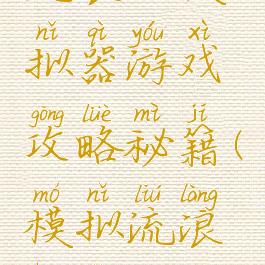 nǐ qì yóu xì
拟器游戏
gōng lüè mì jí
攻略秘籍(
mó nǐ liú làng
模拟流浪